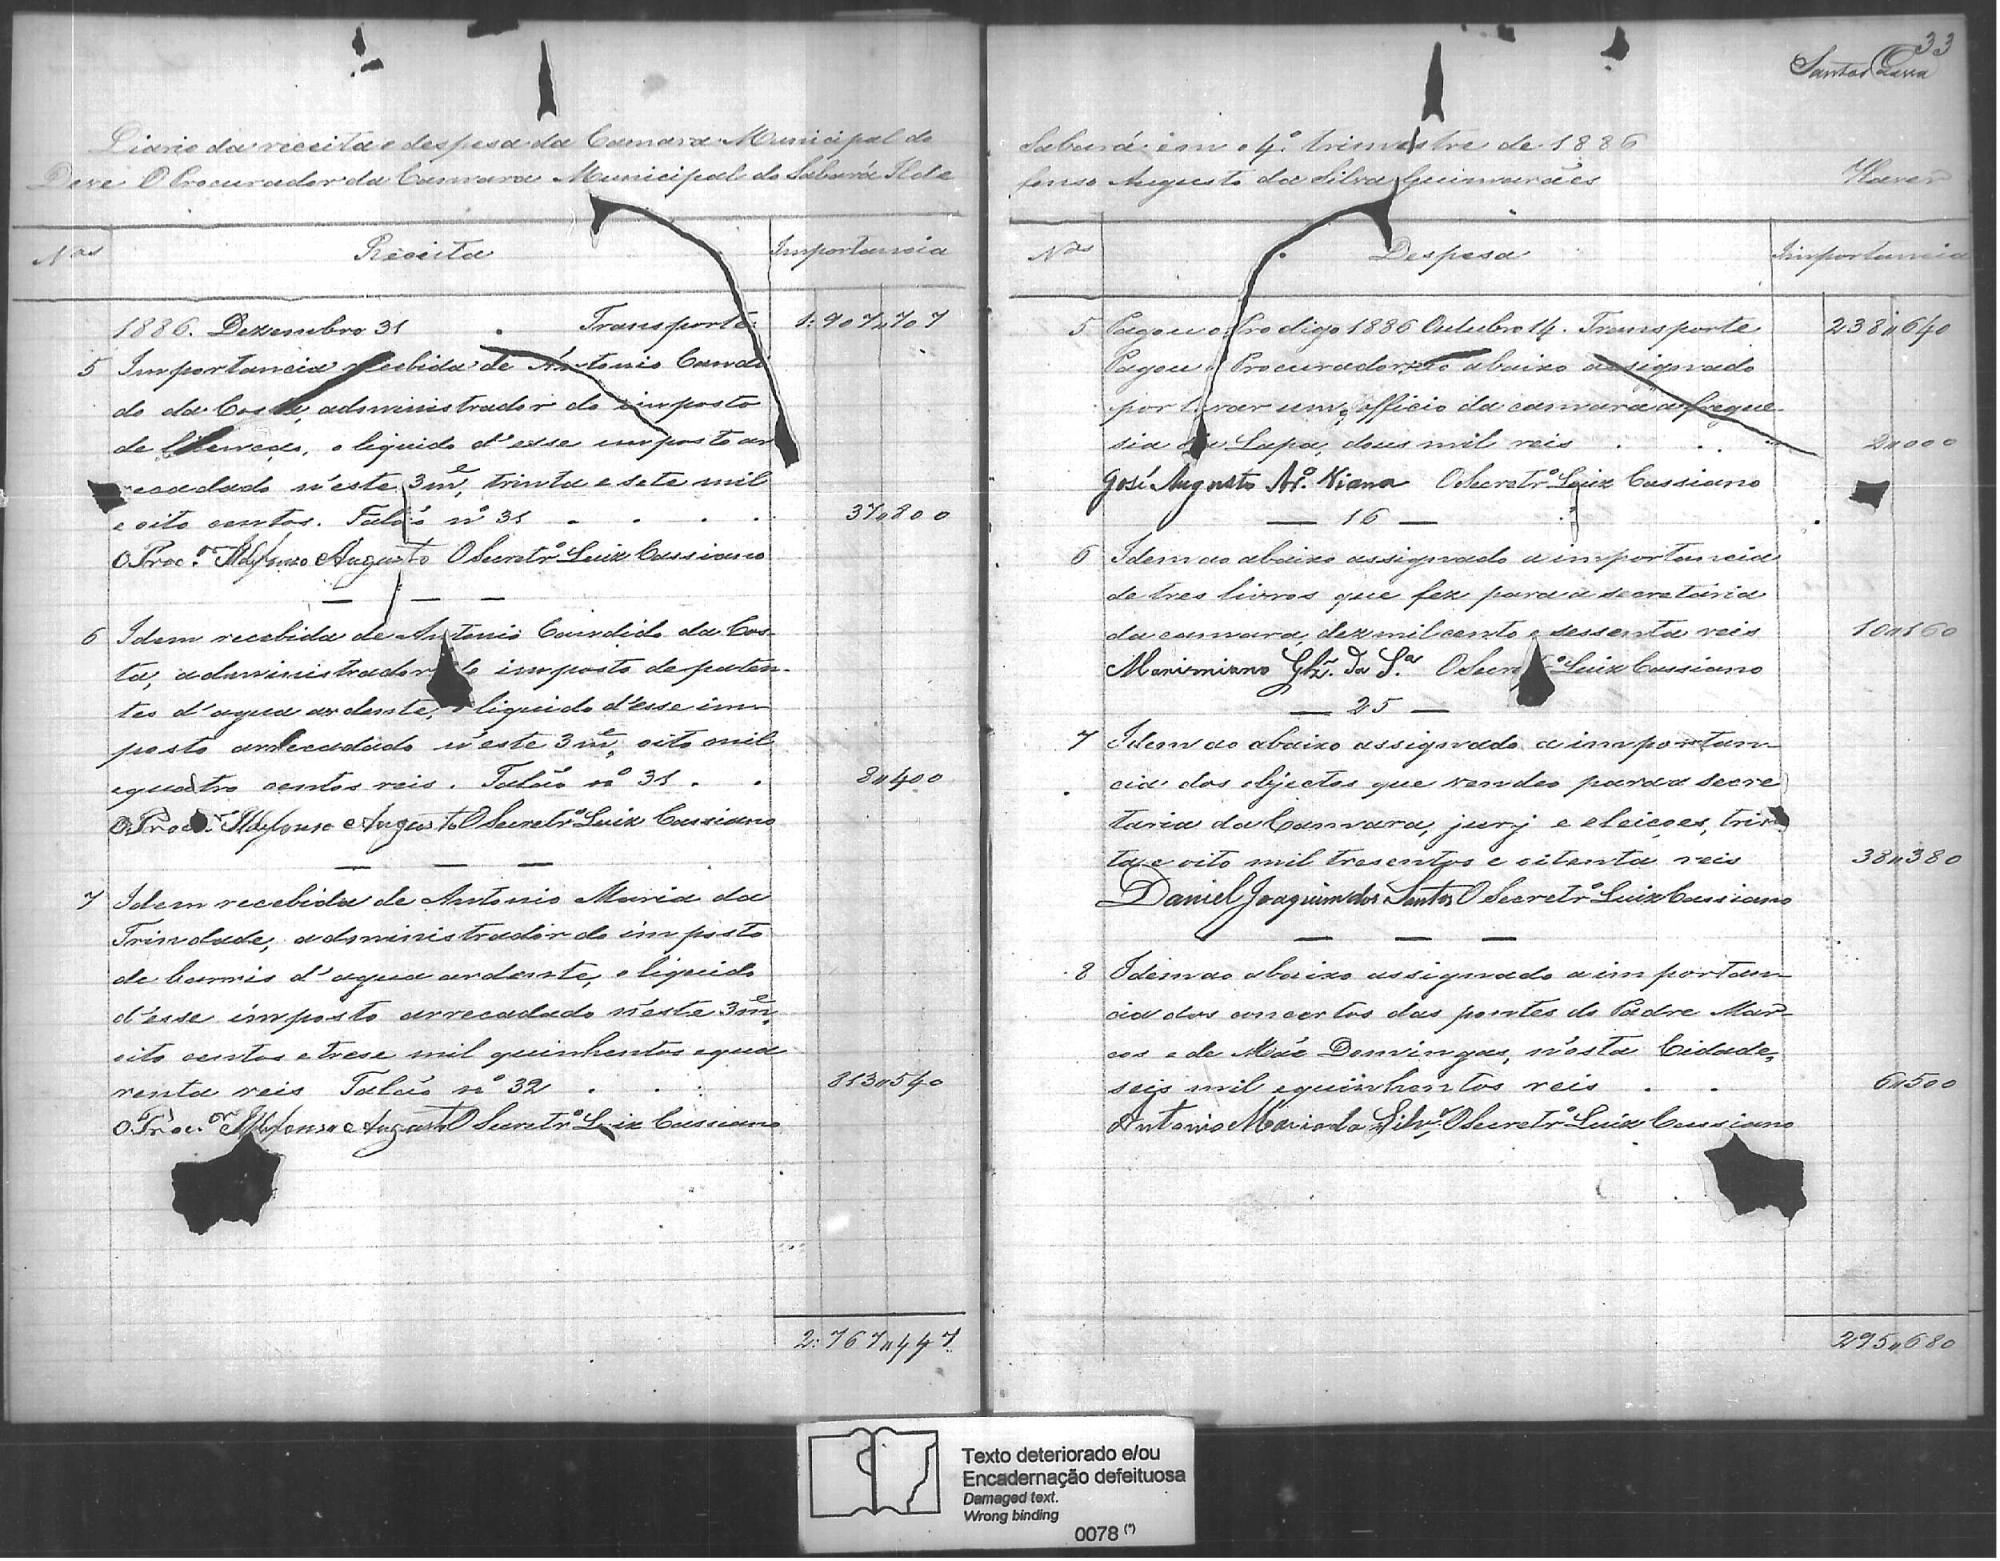 33
Santos
Diario da receita e despesa da Camara Municipal do
Deve O Procurador da Camara Municipal do Sabará Ilde
Nos Receita Importancia
1886. Dezembro 31 . Transporte: 1:907"707
5 Importancia recebida de Antonio Candi
do da Costa, administrador do imposto
de licença, o liquido d'esse imposto ar
recadado n'este 3me, trinta e sete mil
e oito centos. Talão nº 31 . . . . 37"800
O Proc.or Ildefonso Augusto O Secretrº Luiz Cassiano
— — —
6 Idem recebida de Antonio Candido da Cos-
ta, administrador do imposto de paten-
tes d'agua ardente, o liquido d'esse im
posto arrecadado n'este 3me, oito mil
e quatro centos reis. Talão nº 31 . . 8"400
O Proc.or Ildefonso Augusto O Secretrº Luiz Cassiano
— — —
7 Idem recebida de Antonio Maria da
Trindade, administrador do imposto
de barris d'agua ardente, o liquido
d'esse imposto arrecadado n'este 3me,
oito centos e trese mil quinhentos e qua
renta reis Talão nº 32 . . . 813"540
O Proc.or Ildefonso Augusto O Secretrº Luiz Cassiano
2:767"447
Sabará em o 4º. trimestre de 1886
fonso Augusto da Silva Guimarães Haver
Nos Despesa Importancia
5 Pagou o Pro digo 1886 Outubro 14. Transporte 238"640
Pagou o Procurador ao abaixo assignado
por levar um officio da camara a fregue-
sia da Lapa, dous mil reis . . . 2"000
José Augusto Viana O Secretrº Luiz Cassiano
— 16 —
6 Idem ao abaixo assignado a importancia
de tres livros que fez para a secretaria
da camara, dez mil cento e sessenta reis 10"160
da Sª O Secretrº Luiz Cassiano
— 25 —
7 Idem ao abaixo assignado a importan
cia dos objectos que vendeo para a secre
taria da Camara, jury e eleições, trin
ta e oito mil tresentos e oitenta reis 38"380
Daniel Joaquim dos Santos O Secretrº Luiz Cassiano
— — —
8 Idem ao abaixo assignado a importan
cia dos concertos das pontes do Padre Mar-
cos e de Mãe Domingas, n'esta Cidade,
seis mil e quinhentos reis . . 6"500
Antonio Maria da Silvª O Secretrº Luiz Cassiano
295"680
Texto deteriorado e/ou
Encadernação defeituosa
Damaged text.
Wrong binding
0078 (*)